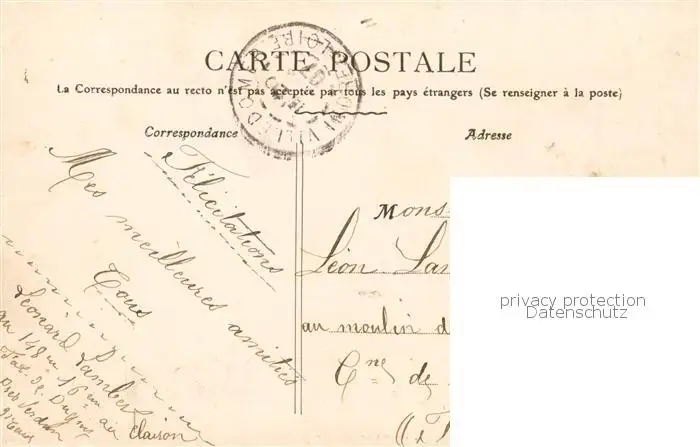 CARTE POSTALE
La Correspondance au recto n'est pas acceptée par tous les pays étrangers (Se renseigner à la poste)
Correspondance
Félicitations
Mes meilleures amitiés
Tous
Léonard Lambert
au 148me 16me
clairon
Près Verdun
Adresse
Mons
Léon Lam
au moulin d
Cne de
privacy protection
Datenschutz